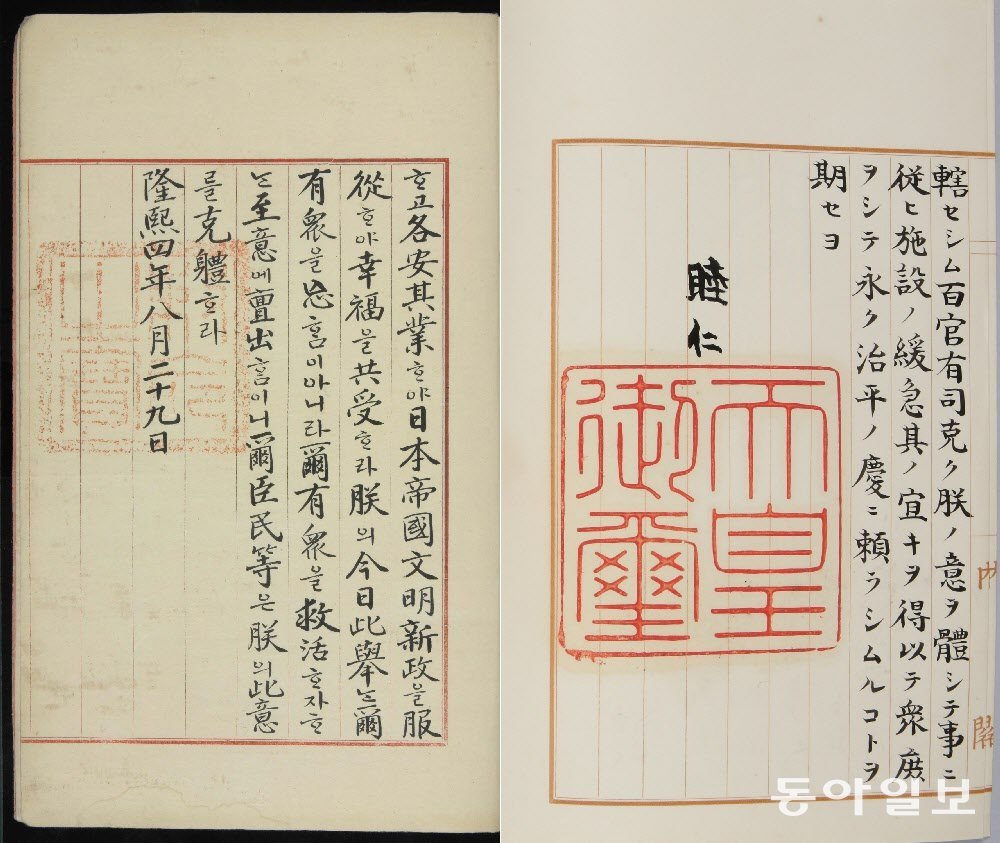 ᄒᆞ고各安其業ᄒᆞ야日本帝國文明新政을服
從ᄒᆞ야幸福을共受ᄒᆞ라朕의今日此擧ᄂᆞᆫ爾
有衆을忘홈이아니라爾有衆을救活ᄒᆞ자ᄒᆞ
ᄂᆞᆫ至意에亶出홈이니爾臣民等은朕의此意
를克體ᄒᆞ라
隆熙四年八月二十九日
内閣
轄セシム百官有司克ク朕ノ意ヲ體シテ事ニ
従ヒ施設ノ緩急其ノ宜キヲ得以テ衆庶
ヲシテ永ク治平ノ慶ニ頼ラシムルコトヲ
期セヨ
睦仁
天皇
御璽
동아일보